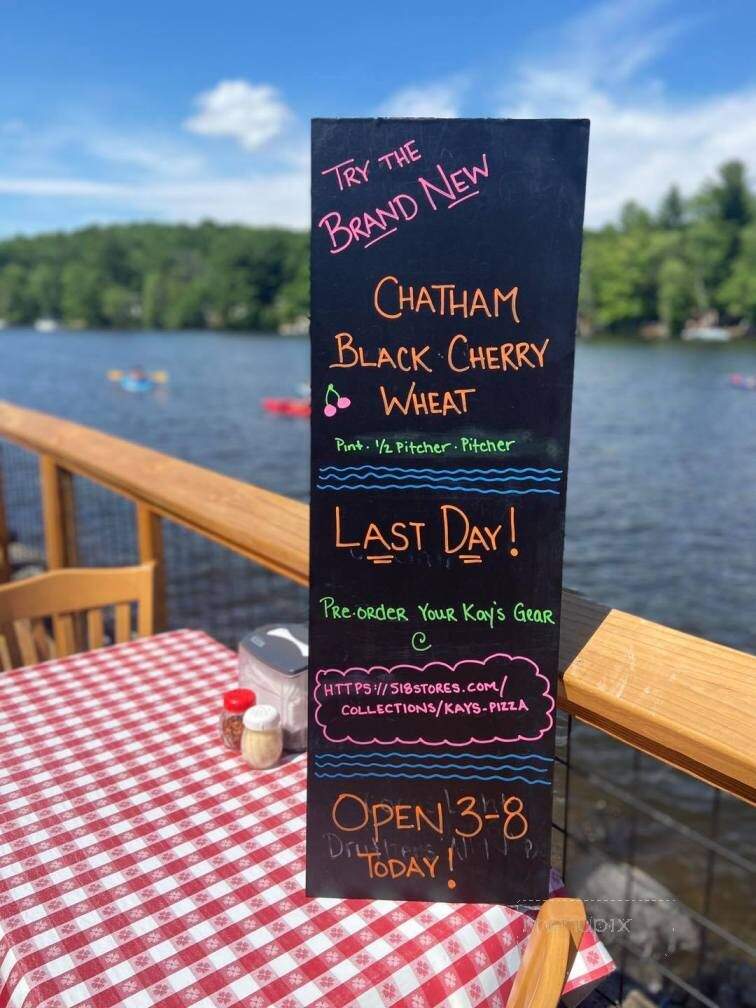 TRY THE
BRAND NEW
CHATHAM
BLACK CHERRY
WHEAT
Pint · 1/2 Pitcher · Pitcher
LAST DAY!
PRE-ORDER YOUR Kay's GEAR
@
HTTPS://518STORES.COM/
COLLECTIONS/KAYS-PIZZA
OPEN 3-8
TODAY!